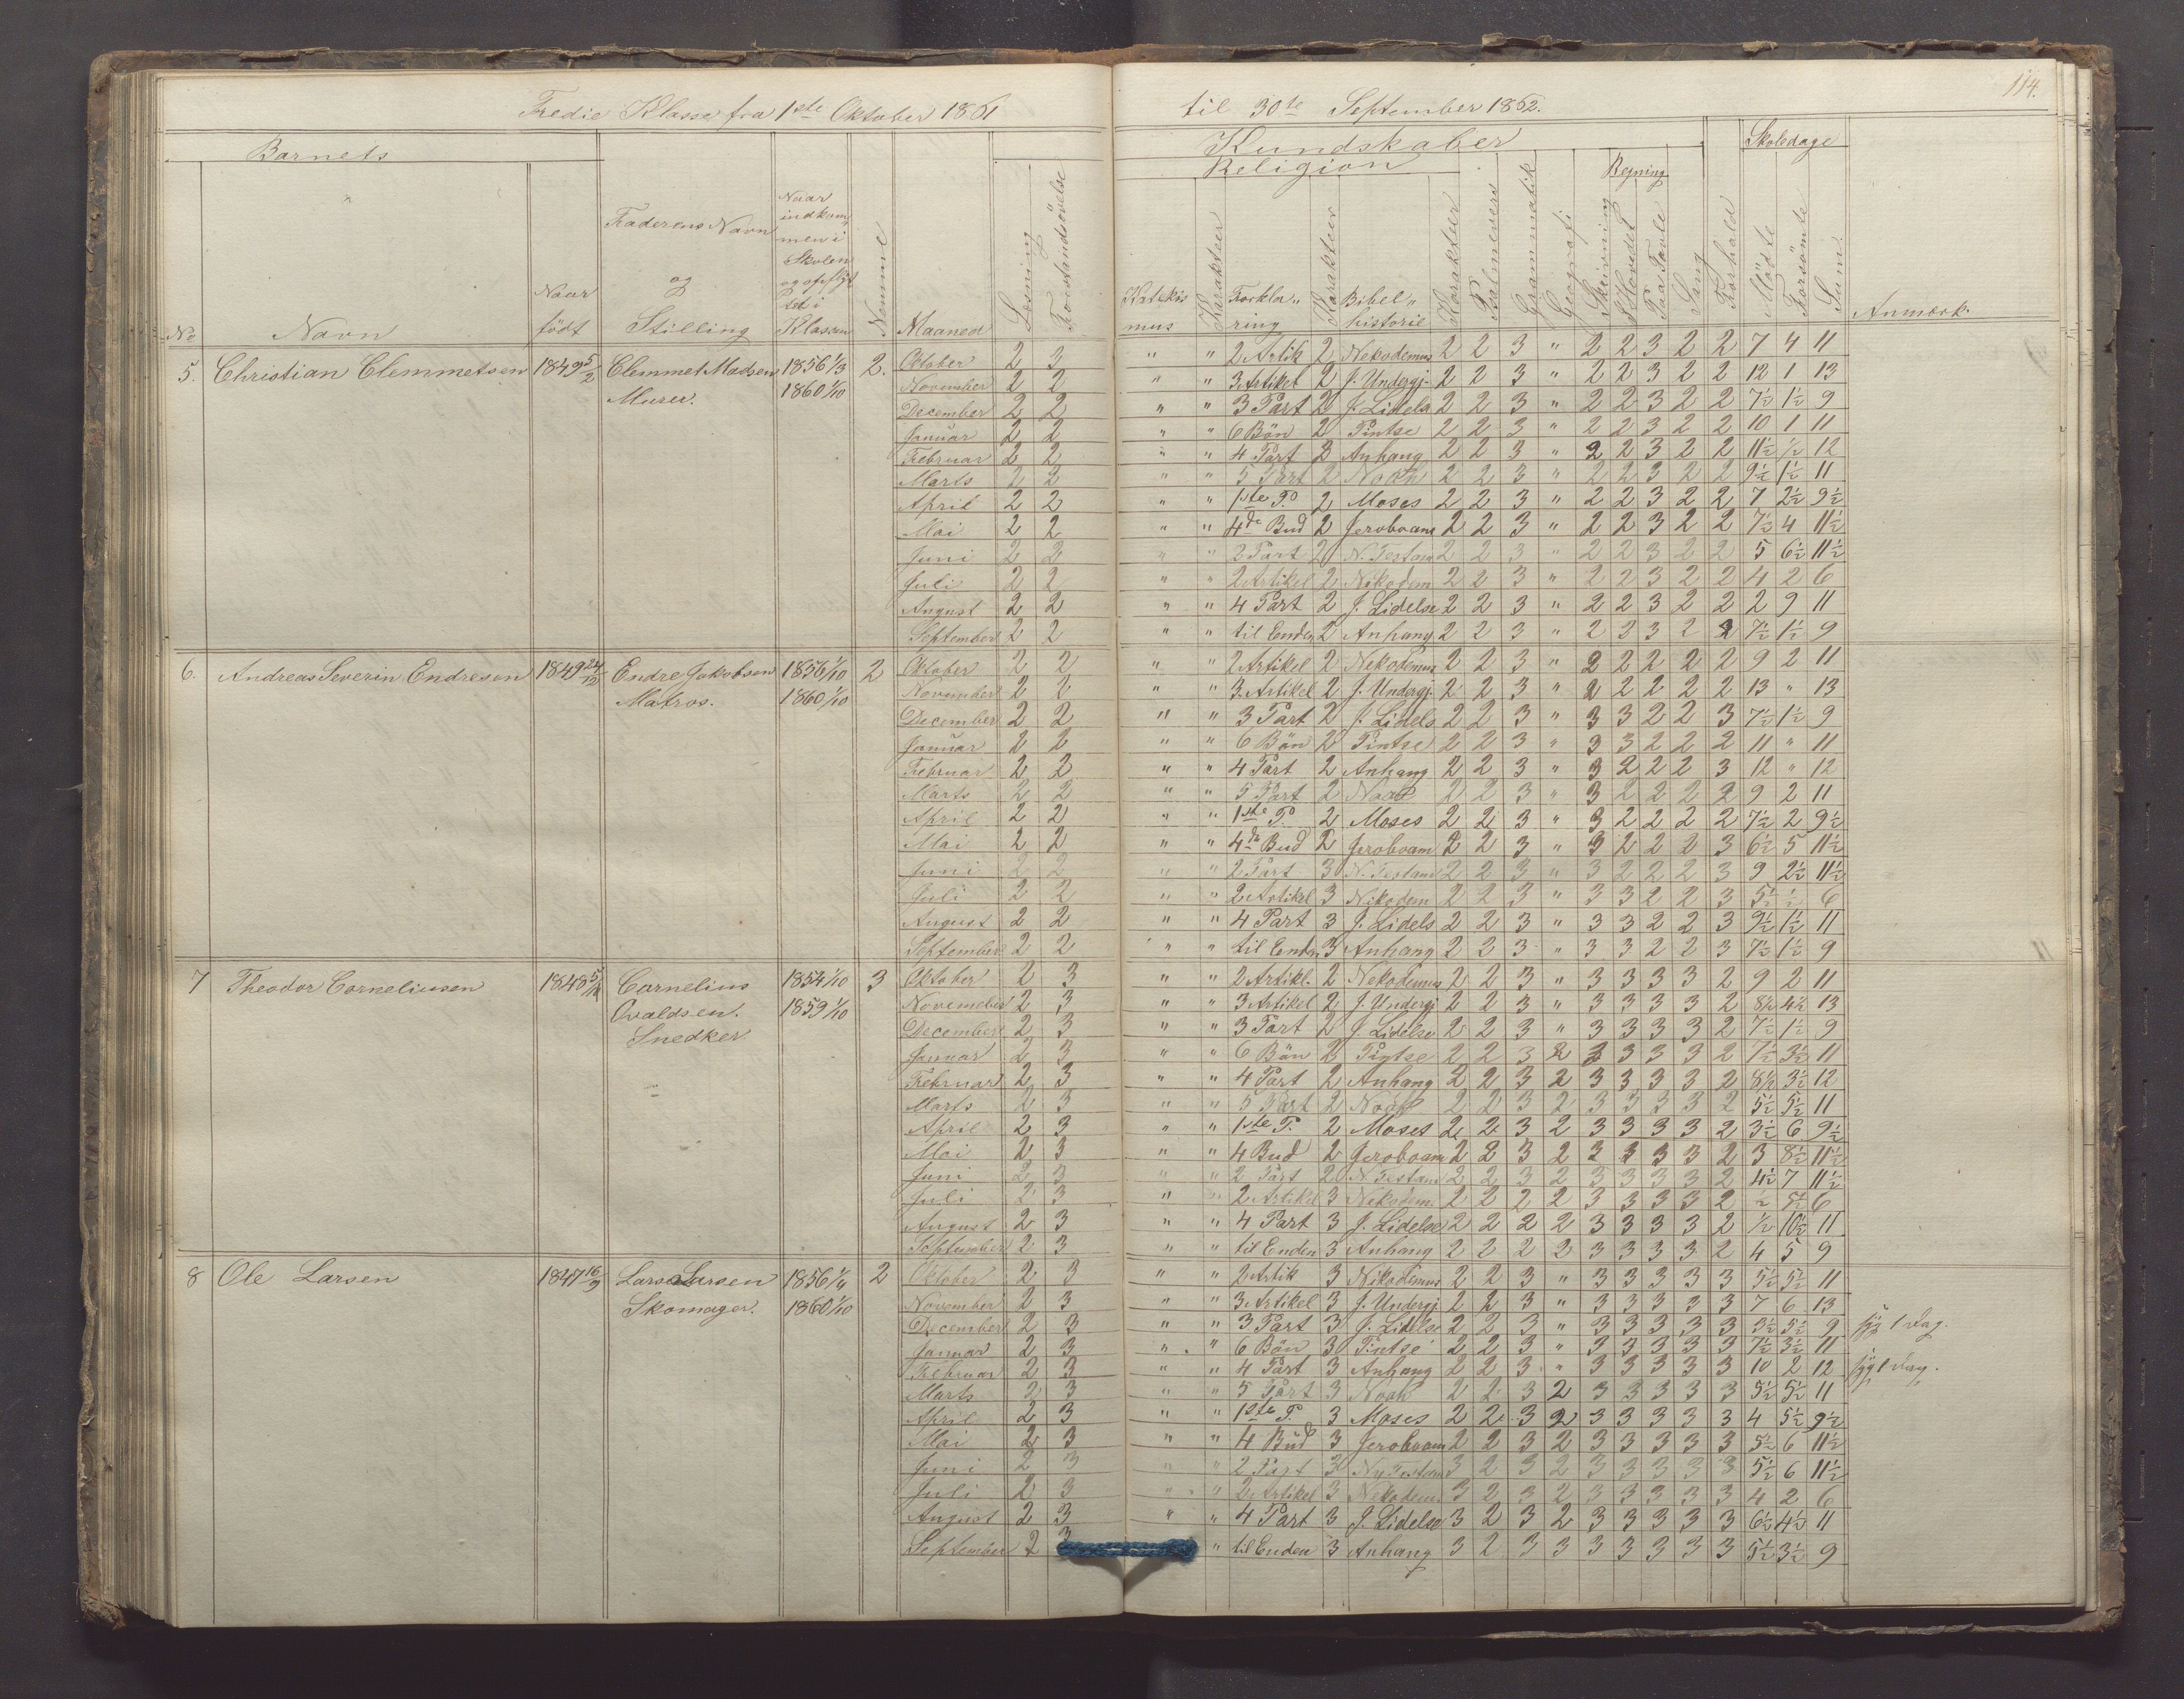 114.
Tredie Klasse fra 1ste Oktober 1861 til 30te September 1862.
Barnets
Kundskaber
Skoledage
Religion
Regning
No
Navn
Naar født
Faderens Navn og Stilling
Naar indkommen i Skolen og opflyttet i Klassen
Maaned
Læsning
Forstandsövelse
Katekismus
Karakteer
Forklaring
Karakteer
Bibelhistorie
Karakteer
Psalmevers
Grammatik
Geografi
Skrivning
I Hovedet
Paa Tavle
Sang
Forhold
Mödte
Forsömte
Sum
Anmærk.
5. Christian Clemmetsen 1849 5/2 Clemmet Madsen Murer. 1856 1/3 1860 1/10 2.
Oktober 2 3 " " 2 Artik 2 Nekodemus 2 2 3 " 2 2 3 2 2 7 4 11
November 2 2 " " 3 Artikel 2 J. Undergj. 2 2 3 " 2 2 3 2 2 12 1 13
December 2 2 " " 3 Part 2 J. Lidels 2 2 3 " 2 2 3 2 2 7½ 1½ 9
Januar 2 2 " " 6 Bön 2 Pintse 2 2 3 " 2 2 3 2 2 10 1 11
Februar 2 2 " " 4 Part 2 Anhang 2 2 3 " 2 2 3 2 2 11½ ½ 12
Marts 2 2 " " 5 Part 2 Noah 2 2 3 " 2 2 3 2 2 9½ 1½ 11
April 2 2 " " 1ste P. 2 Moses 2 2 3 " 2 2 3 2 2 7 2½ 9½
Mai 2 2 " " 4de Bud 2 Jeroboam 2 2 3 " 2 2 3 2 2 7½ 4 11½
Juni 2 2 " " 2 Part 2 N. Testam 2 2 3 " 2 2 3 2 2 5 6½ 11½
Juli 2 2 " " 2 Artikel 2 Nikodem 2 2 3 " 2 2 3 2 2 4 2 6
August 2 2 " " 4 Part 2 J. Lidelse 2 2 3 " 2 2 3 2 2 2 9 11
September 2 2 " " til Enden 2 Anhang 2 2 3 " 2 2 3 2 2 7½ 1½ 9
6. Andreas Severin Endresen 1849 24/12 Endre Jakobsen Matros. 1856 1/10 1860 1/10 2
Oktober 2 2 " " 2 Artikel 2 Nekodemus 2 2 3 " 2 2 2 2 2 9 2 11
November 2 2 " " 3. Artikel 2 J. Undergj. 2 2 3 " 2 2 2 2 2 13 " 13
December 2 2 " " 3 Part 2 J. Lidels 2 2 3 " 3 3 2 2 3 7½ 1½ 9
Januar 2 2 " " 6 Bön 2 Pintse 2 2 3 " 3 3 2 2 2 11 " 11
Februar 2 2 " " 4 Part 2 Anhang 2 2 3 " 3 2 2 2 3 12 " 12
Marts 2 2 " " 5 Part 2 Noah 2 2 3 " 3 2 2 2 2 9 2 11
April 2 2 " " 1ste P. 2 Moses 2 2 3 " 3 2 2 2 2 7½ 2 9½
Mai 2 2 " " 4de Bud 2 Jeroboam 2 2 3 " 3 2 2 2 3 6½ 5 11½
Juni 2 2 " " 2 Part 3 N. Testam 2 2 3 " 3 2 2 2 3 9 2½ 11½
Juli 2 2 " " 2 Artikel 3 Nikodem 2 2 3 " 3 3 2 2 3 5½ ½ 6
August 2 2 " " 4 Part 3 J. Lidels 2 2 3 " 3 3 2 2 3 9½ 1½ 11
September 2 2 " " til Enden 3 Anhang 2 2 3 " 3 3 2 2 3 7½ 1½ 9
7 Theodor Corneliusen 1848 5/12 Cornelius Ovaldsen. Snedker 1854 1/10 1859 1/10 3
Oktober 2 3 " " 2 Artikl. 2 Nekodemus 2 2 3 " 3 3 3 3 2 9 2 11
November 2 3 " " 3 Artikel 2 J. Undergj 2 2 3 " 3 3 3 3 2 8½ 4½ 13
December 2 3 " " 3 Part 2 J. Lidelse 2 2 3 " 3 3 3 3 2 7½ 1½ 9
Januar 2 3 " " 6 Bön 2 Pintse 2 2 3 2 3 3 3 3 2 7½ 3½ 11
Februar 2 3 " " 4 Part 2 Anhang 2 2 3 2 3 3 3 3 2 8½ 3½ 12
Marts 2 3 " " 5 Part 2 Noah 2 2 3 2 3 3 3 3 2 5½ 5½ 11
April 2 3 " " 1ste P. 2 Moses 2 2 3 2 3 3 3 3 2 3½ 6 9½
Mai 2 3 " " 4 Bud 2 Jeroboam 2 2 3 2 3 3 3 3 2 3 8½ 11½
Juni 2 3 " " 2 Part 2 N Testam 2 2 3 2 3 3 3 3 2 4½ 7 11½
Juli 2 3 " " 2 Artikel 3 Nekodem 2 2 2 2 3 3 3 3 2 ½ 5½ 6
August 2 3 " " 4 Part 3 J. Lidelse 2 2 2 2 3 3 3 3 2 ½ 10½ 11
September 2 3 " " til Enden 3 Anhang 2 2 2 2 3 3 3 3 2 4 5 9
8 Ole Larsen 1847 16/9 Lars Larsen Skomager. 1856 1/4 1860 1/10 2
Oktober 2 3 " " 2 Artik 3 Nikodemus 2 2 3 " 3 3 3 3 3 5½ 5½ 11
November 2 3 " " 3 Artikel 3 J. Undergj. 2 2 3 " 3 3 3 3 3 7 6 13
December 2 3 " " 3 Part 3 J. Lidelse 2 2 3 " 3 3 3 3 3 3½ 5½ 9 syg 1 Dag.
Januar 2 3 " " 6 Bön 3 Pintse 2 2 3 " 3 3 3 3 3 7½ 3½ 11
Februar 2 3 " " 4 Part 3 Anhang 2 2 3 " 3 3 3 3 3 10 2 12 syg 1 Dag.
Marts 2 3 " " 5 Part 3 Noah 2 2 3 2 3 3 3 3 3 5½ 5½ 11
April 2 3 " " 1ste P. 3 Moses 2 2 3 2 3 3 3 3 3 4 5½ 9½
Mai 2 3 " " 4 Bud 3 Jeroboam 2 2 3 2 3 3 3 3 3 5½ 6 11½
Juni 2 3 " " 2 Part 3 Ny Testam 3 2 3 2 3 3 3 3 3 5½ 6 11½
Juli 2 3 " " 2 Artikel 3 Nekodem. 3 2 3 2 3 3 3 3 3 4 2 6
August 2 3 " " 4 Part 3 J. Lidelse 3 2 3 2 3 3 3 3 3 6½ 4½ 11
September 2 3 " til Enden 3 Anhang 3 2 3 3 3 3 3 3 3 5½ 3½ 9